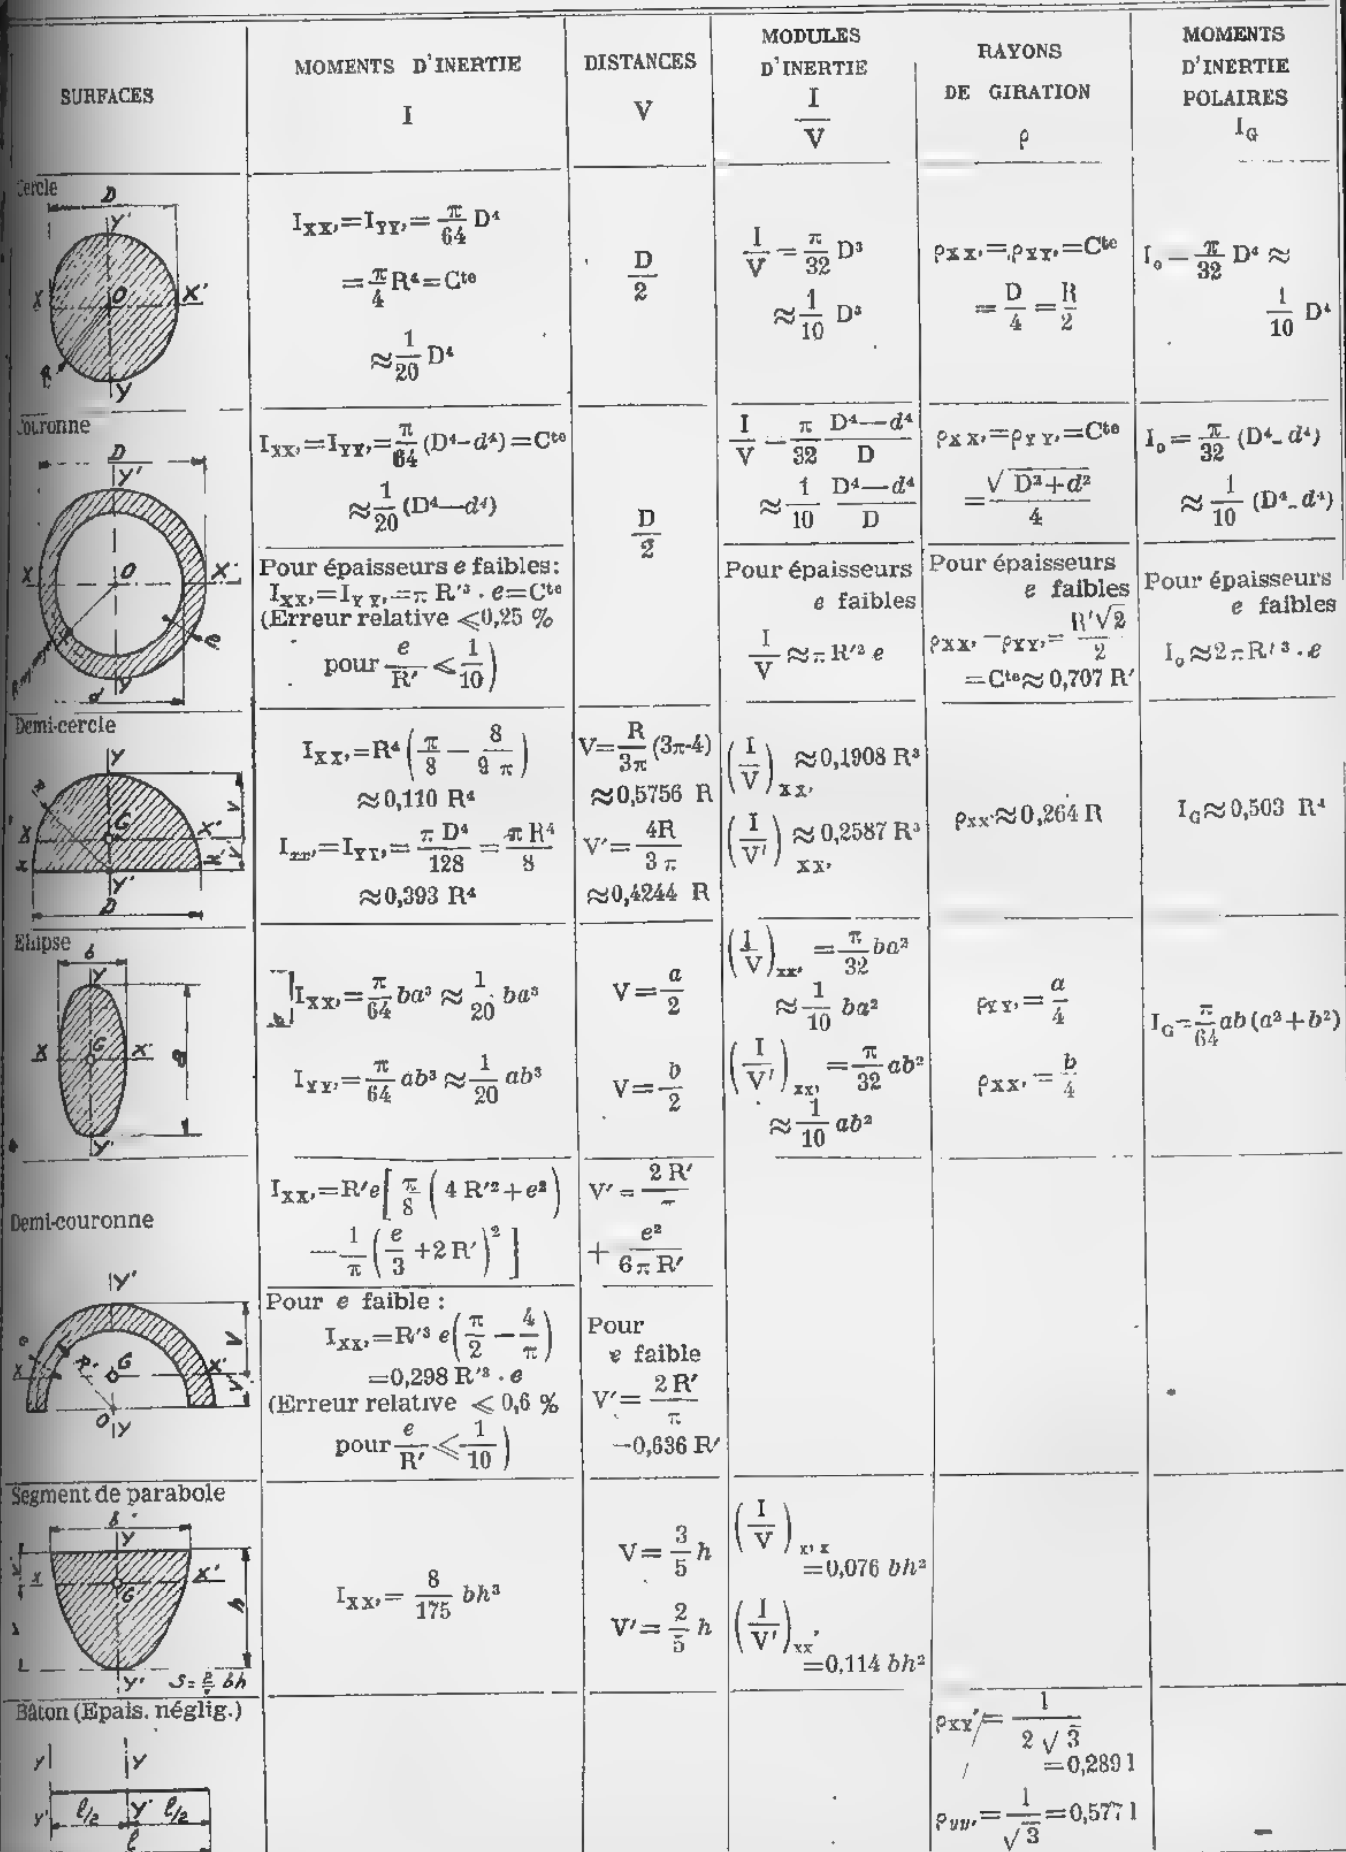 SURFACES
MOMENTS D'INERTIE
I
DISTANCES
V
MODULES
D'INERTIE
I
V
RAYONS
DE GIRATION
ρ
MOMENTS
D'INERTIE
POLAIRES
I_G
Cercle
D
Y'
X O X'
R
Y
I_XX' = I_YY' = π/64 D⁴
= π/4 R⁴ = C^te
≈ 1/20 D⁴
D/2
I/V = π/32 D³
≈ 1/10 D³
ρ_XX' = ρ_YY' = C^te
= D/4 = R/2
I_o = π/32 D⁴ ≈
1/10 D⁴
Couronne
D
Y'
X O X'
e
Y
d
I_XX' = I_YY' = π/64 (D⁴-d⁴) = C^te
≈ 1/20 (D⁴—d⁴)
Pour épaisseurs e faibles:
I_XX' = I_YY' = π R'³ . e = C^te
(Erreur relative ⩽ 0,25 %
pour e/R' ⩽ 1/10)
D/2
I/V = π/32 D⁴—d⁴/D
≈ 1/10 D⁴—d⁴/D
Pour épaisseurs
e faibles
I/V ≈ π R'² e
ρ_XX' = ρ_YY' = C^te
= √D²+d²/4
Pour épaisseurs
e faibles
ρ_XX' = ρ_YY' = R'√2/2
= C^te ≈ 0,707 R'
I_o = π/32 (D⁴-d⁴)
≈ 1/10 (D⁴-d⁴)
Pour épaisseurs
e faibles
I_o ≈ 2πR'³ . e
Demi-cercle
Y
R
V
X G X'
x x'
V'
Y'
D
I_XX' = R⁴ (π/8 — 8/9π)
≈ 0,110 R⁴
I_xx' = I_YY' = π D⁴/128 = π R⁴/8
≈ 0,393 R⁴
V = R/3π (3π-4)
≈ 0,5756 R
V' = 4R/3π
≈ 0,4244 R
(I/V)_XX' ≈ 0,1908 R³
(I/V')_XX' ≈ 0,2587 R³
ρ_XX' ≈ 0,264 R
I_G ≈ 0,503 R⁴
Elipse
b
Y
X G X'
a
Y'
I_XX' = π/64 ba³ ≈ 1/20 ba³
I_YY' = π/64 ab³ ≈ 1/20 ab³
V = a/2
V = b/2
(I/V)_XX' = π/32 ba²
≈ 1/10 ba²
(I/V')_XX' = π/32 ab²
≈ 1/10 ab²
ρ_YY' = a/4
ρ_XX' = b/4
I_G = π/64 ab (a²+b²)
Demi-couronne
Y'
e
V
X R' G X'
V'
O
Y
I_XX' = R'e [π/8 (4 R'²+e²)
— 1/π (e/3 + 2 R')²]
Pour e faible :
I_XX' = R'³ e (π/2 — 4/π)
= 0,298 R'³ . e
(Erreur relative ⩽ 0,6 %
pour e/R' ⩽ 1/10)
V' = 2 R'/π
+ e²/6π R'
Pour
e faible
V' = 2 R'/π
—0,636 R'
Segment de parabole
b
Y
X G X'
h
Y'
S = bh
I_XX' = 8/175 bh³
V = 3/5 h
V' = 2/5 h
(I/V)_x'x
= 0,076 bh²
(I/V')_xx'
= 0,114 bh²
Bâton (Epais. néglig.)
y Y
y' Y'
l/2 l/2
l
ρ_XX' = 1/2√3
= 0,289 l
ρ_yy' = 1/√3 = 0,577 l